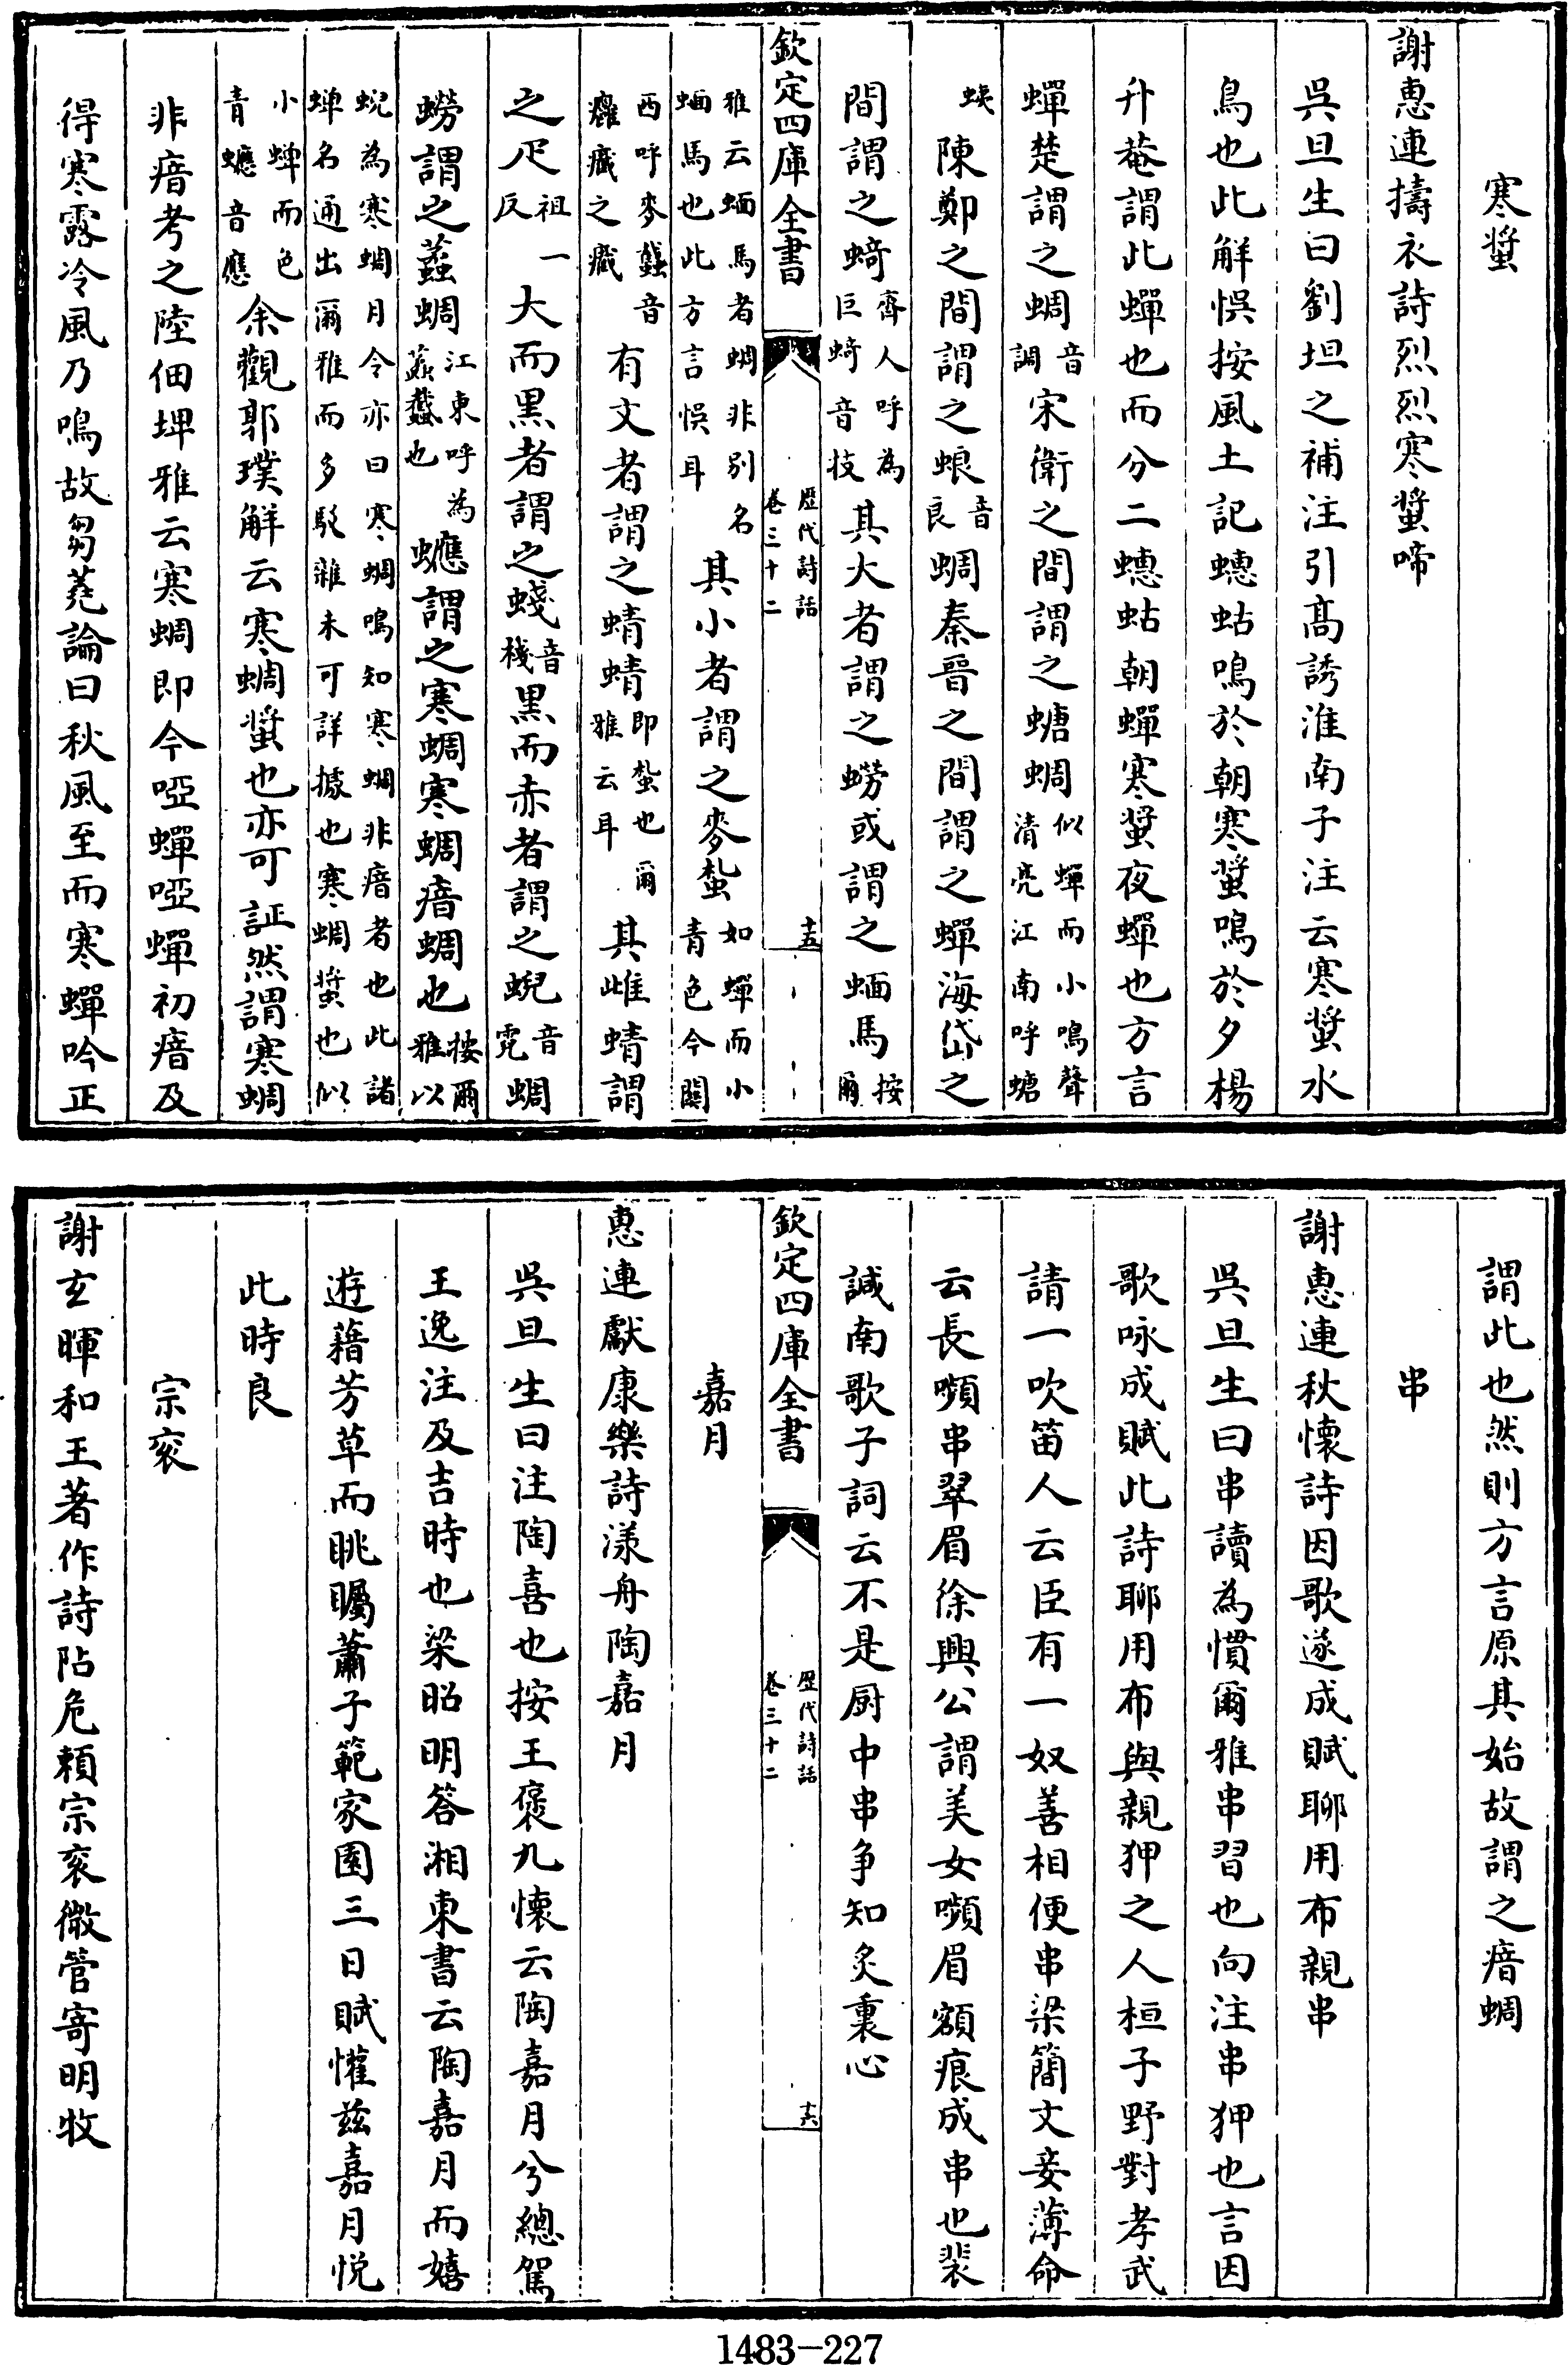 寒螿
謝惠連擣衣詩烈烈寒螿啼
吳旦生曰劉坦之補注引高誘淮南子注云寒螿水
鳥也此解悞按風土記蟪蛄鳴於朝寒螿鳴於夕楊
升菴謂此蟬也而分二蟪蛄朝蟬寒螿夜蟬也方言
蟬楚謂之蜩音調宋衛之間謂之螗蜩似蟬而小鳴聲清亮江南呼螗
蛦陳鄭之間謂之蜋音良蜩秦晉之間謂之蟬海岱之
間謂之䗁齊人呼為巨䗁音技其大者謂之蟧或謂之蝒馬按爾
欽定四庫全書
歷代詩話卷三十二
十五
雅云蝒馬者蜩非別名蝒馬也此方言悞耳其小者謂之麥蚻如蟬而小青色今關
西呼麥蠽音癰癤之癤有文者謂之蜻蜻即蚻也爾雅云耳其雌蜻謂
之疋祖一反大而黑者謂之䗃音棧黑而赤者謂之蜺音霓蜩
蟧謂之䗬蜩江東呼為䗬蠽也䗲謂之寒蜩寒蜩瘖蜩也按爾雅以
蜺為寒蜩月令亦曰寒蜩鳴知寒蜩非瘖者也此諸蟬名通出爾雅而多駮雜未可詳據也寒蜩螿也似
小蟬而色青䗲音應余觀郭璞解云寒蜩螿也亦可証然謂寒蜩
非瘖考之陸佃埤雅云寒蜩即今啞蟬啞蟬初瘖及
得寒露冷風乃鳴故芻蕘論曰秋風至而寒蟬吟正
謂此也然則方言原其始故謂之瘖蜩
串
謝惠連秋懷詩因歌遂成賦聊用布親串
吳旦生曰串讀為慣爾雅串習也向注串狎也言因
歌咏成賦此詩聊用布與親狎之人桓子野對孝武
請一吹笛人云臣有一奴善相便串梁簡文妾薄命
云長嚬串翠眉徐興公謂美女嚬眉額痕成串也裴
諴南歌子詞云不是厨中串争知炙裏心
欽定四庫全書
歷代詩話卷三十二
十六
嘉月
惠連獻康樂詩漾舟陶嘉月
吳旦生曰注陶喜也按王褒九懷云陶嘉月兮總駕
王逸注及吉時也梁昭明答湘東書云陶嘉月而嬉
遊藉芳草而眺矚蕭子範家園三日賦懽兹嘉月悦
此時良
宗衮
謝玄暉和王著作詩阽危賴宗衮微管寄明牧
1483-227